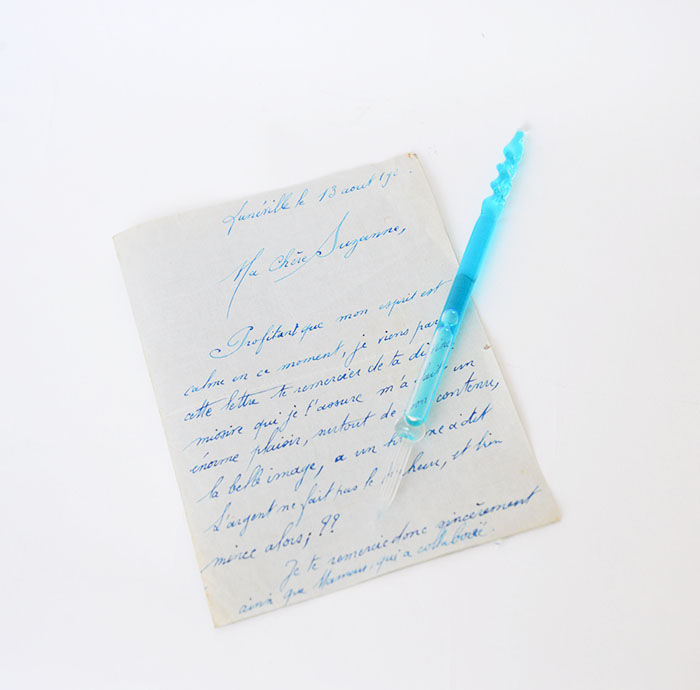 Lunéville le 13 août 19
Ma Chère Suzanne,
Profitant que mon esprit est
calme en ce moment, je viens par
cette lettre te remercier de ta
missive qui je t'assure m'a fait un
énorme plaisir, surtout de son contenu,
la belle image, a un homme a dit
L'argent ne fait pas le bonheur, et bien
mince alors; ??
Je te remercie donc sincèrement
ainsi que Maman, qui a collaboré.